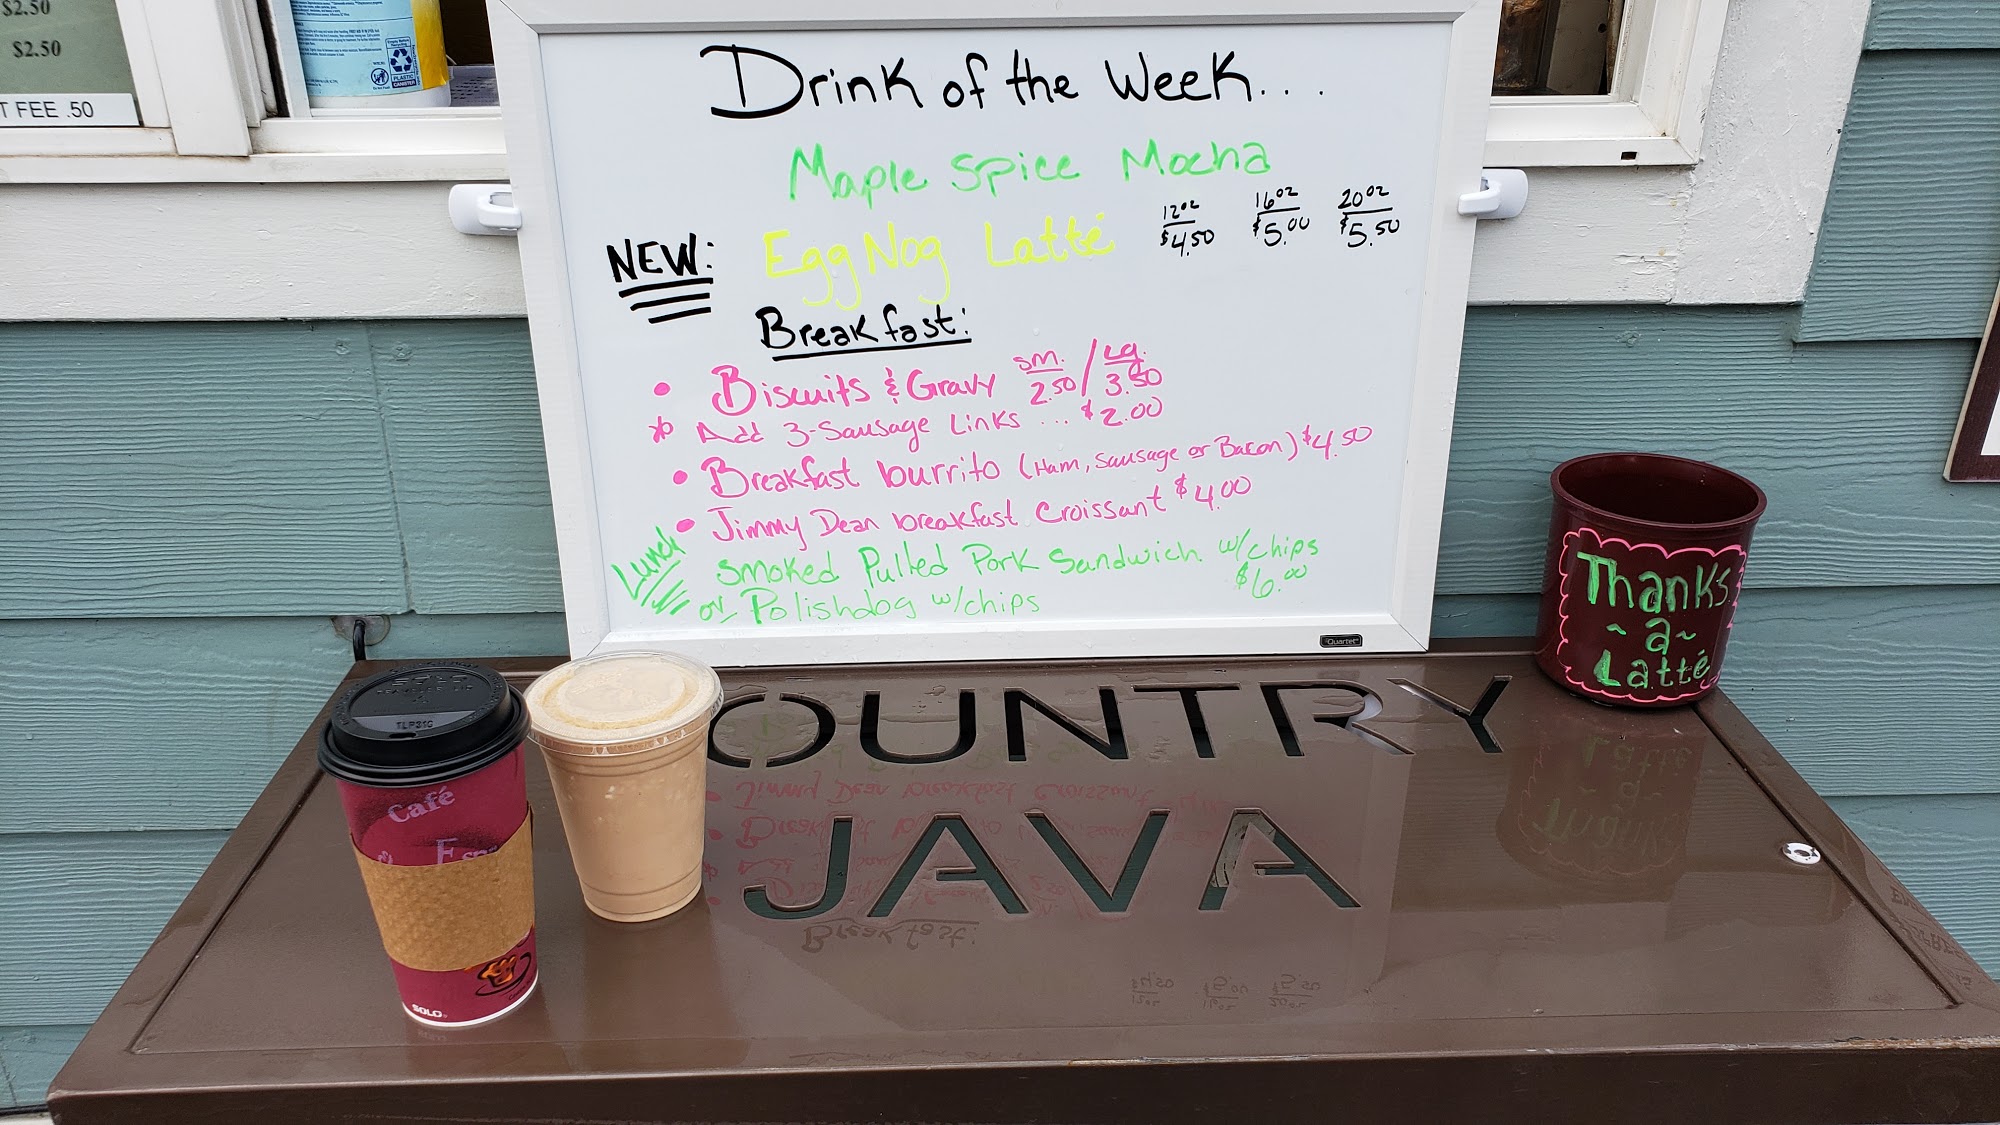 $2.50
$2.50
T FEE .50
PLASTIC
CANISTER
Drink of the Week...
Maple Spice Mocha
NEW: EggNog Latté 12oz $4.50 16oz $5.00 20oz $5.50
Breakfast:
• Biscuits & Gravy sm. 2.50 / Lg. 3.50
* Add 3-Sausage Links ... $2.00
• Breakfast burrito (Ham, Sausage or Bacon) $4.50
• Jimmy Dean breakfast Croissant $4.00
Lunch Smoked Pulled Pork Sandwich w/chips
or Polishdog w/chips $6.00
Quartet
Thanks
~a~
Latté
OUNTRY
JAVA
SOLO
Café
SOLO